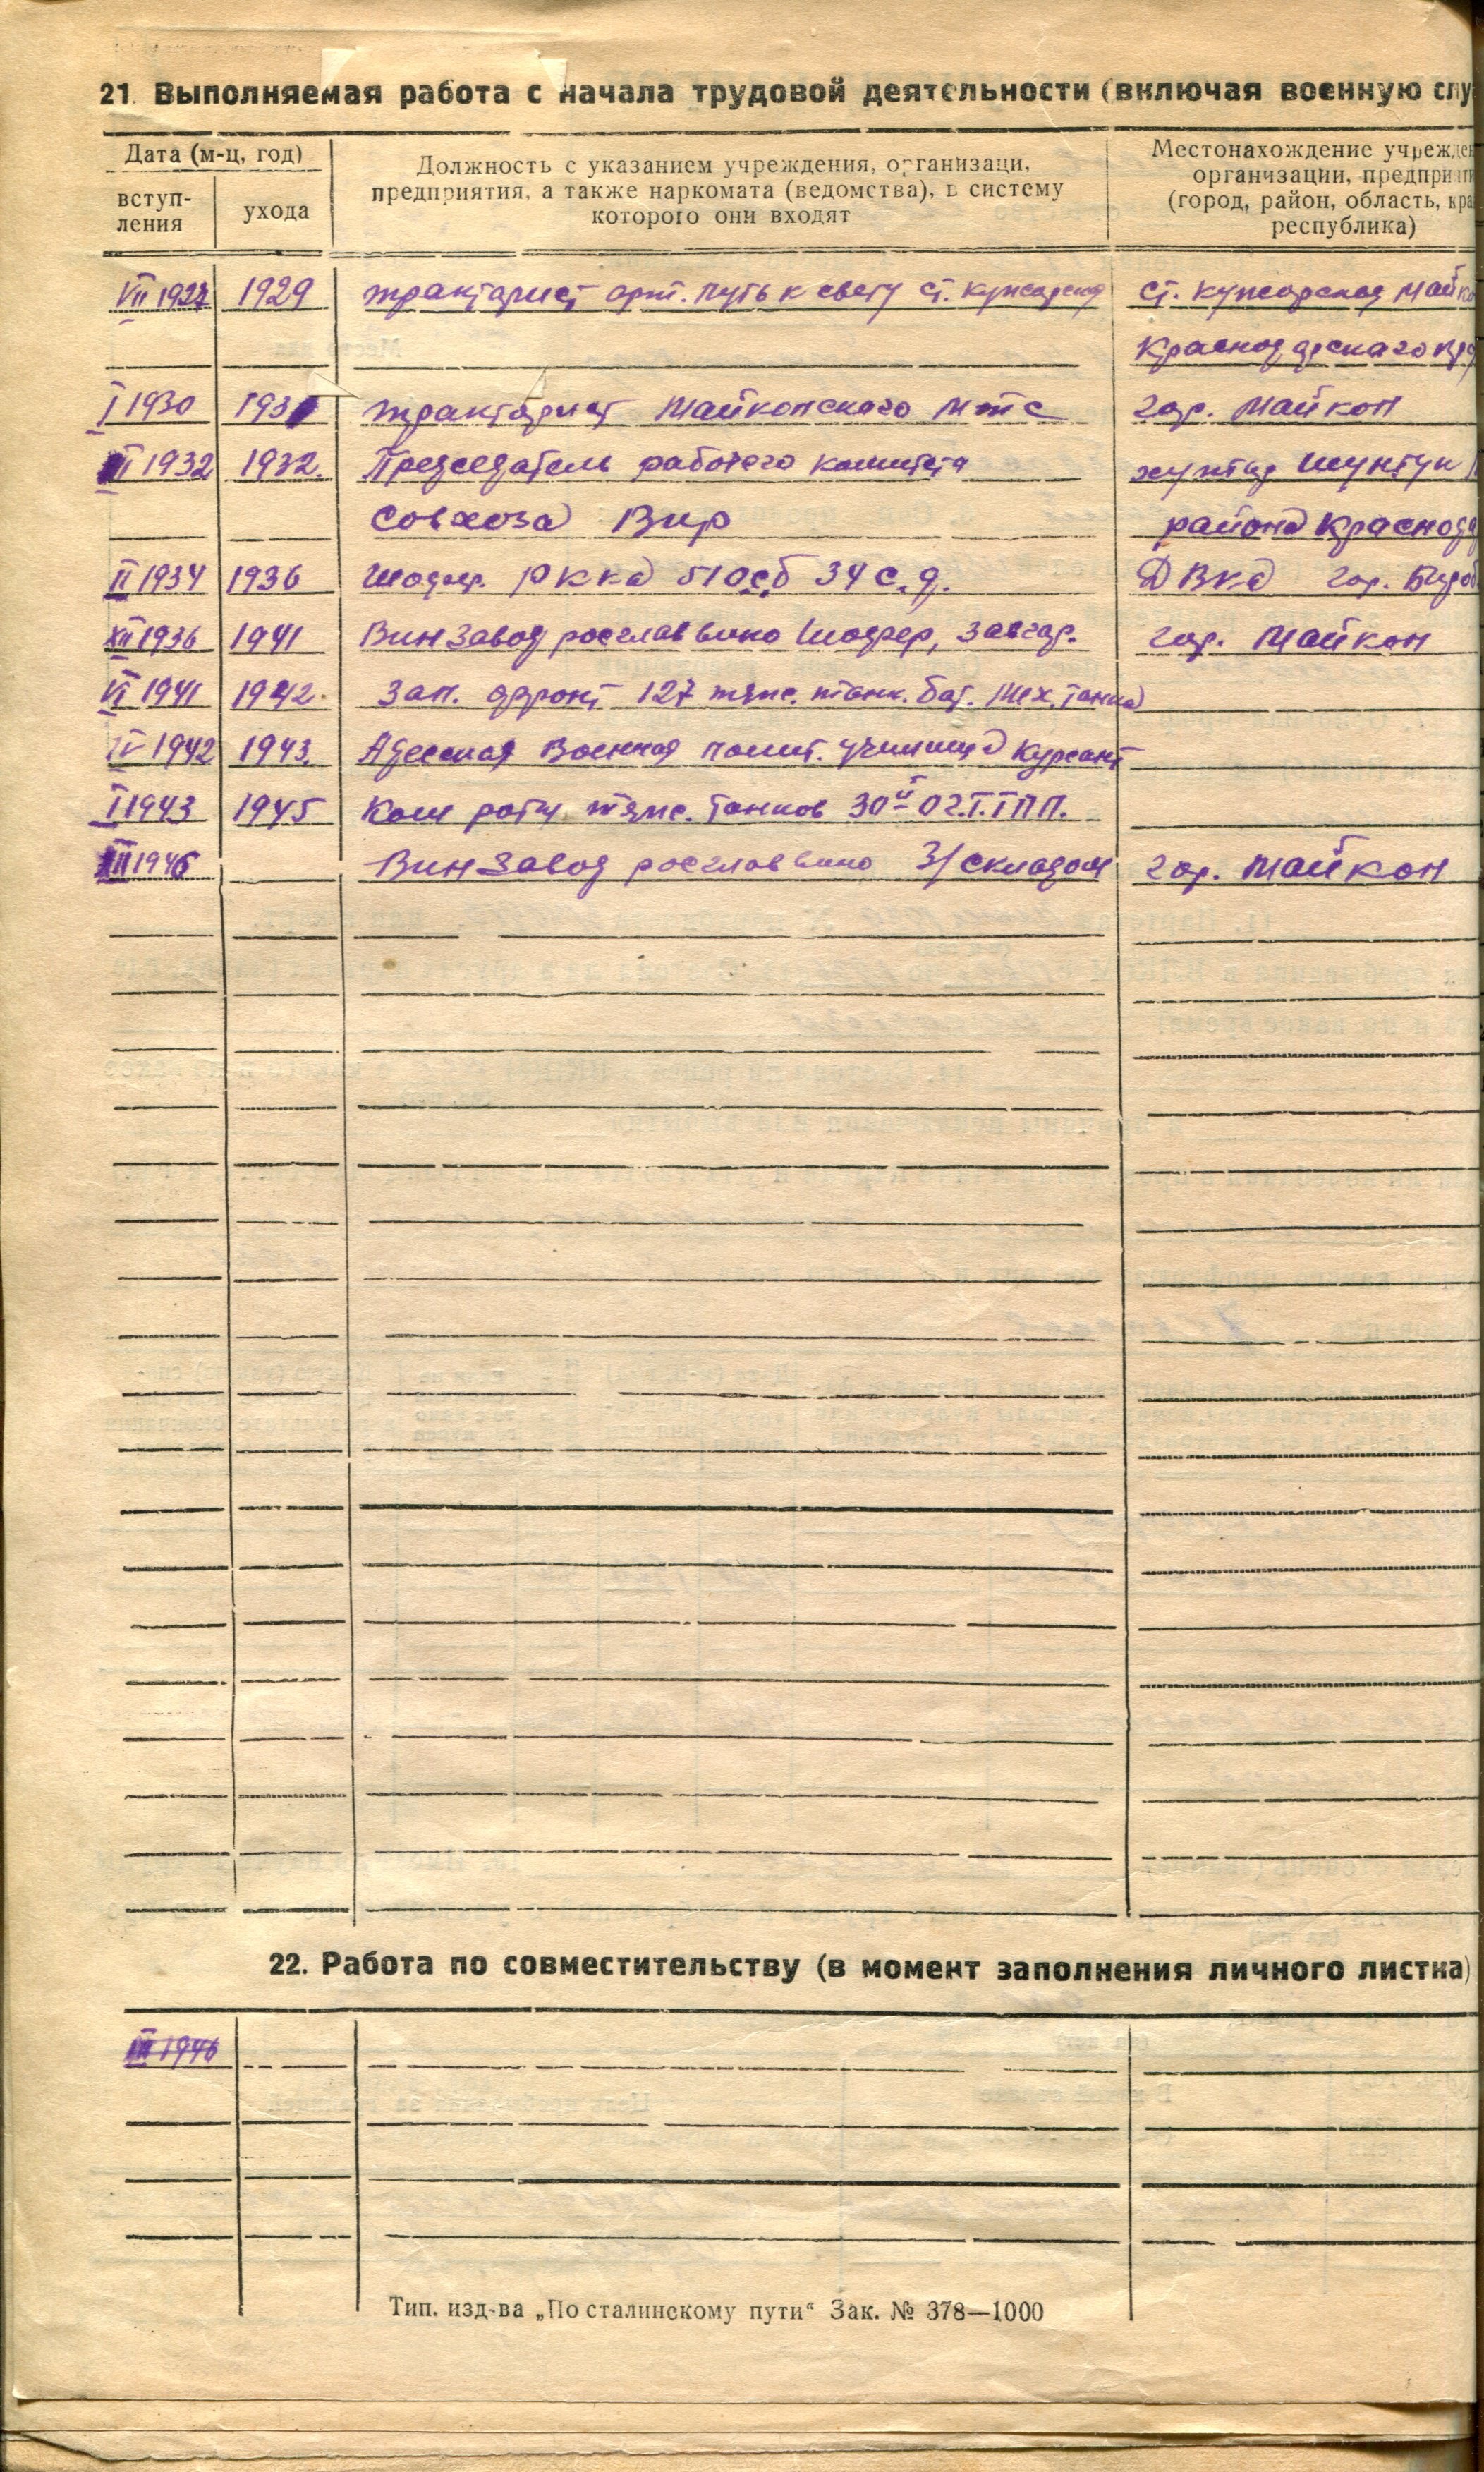 21. Выполняемая работа с начала трудовой деятельности (включая военную слу
Дата (м-ц, год)
вступ-
ления
ухода
Должность с указанием учреждения, организаци,
предприятия, а также наркомата (ведомства), в систему
которого они входят
Местонахождение учрежден
организации, предприяти
(город, район, область, кра
республика)
VII 1927 1929 тракторист арт. путь к свету ст. кужорская ст. кужорская Май
Краснодарского кр
I 1930 1931 тракторист Майкопского мтс гор. Майкоп
II 1932 1932. Председатель рабочего комитета хутор Шунтук
Совхоза Вир района Краснода
II 1934 1936 Шофер. РККА 51 осб 34 с.д. ДВКа гор. Бироб
XII 1936 1941 Винзавод росглаввино Шофер, завгар. гор. Майкоп
VI 1941 1942. Зап. фронт 127 тяж. танк. бат. Мех. танка
IV 1942 1943. Адесская Военная полит. училище Курсант
I 1943 1945 Ком роты тяж. танков 30й О г.Т.Т П П.
III 1946 Винзавод росглаввино З/складом гор. Майкоп
22. Работа по совместительству (в момент заполнения личного листка)
III 1946
Тип. изд-ва „По сталинскому пути“ Зак. № 378—1000